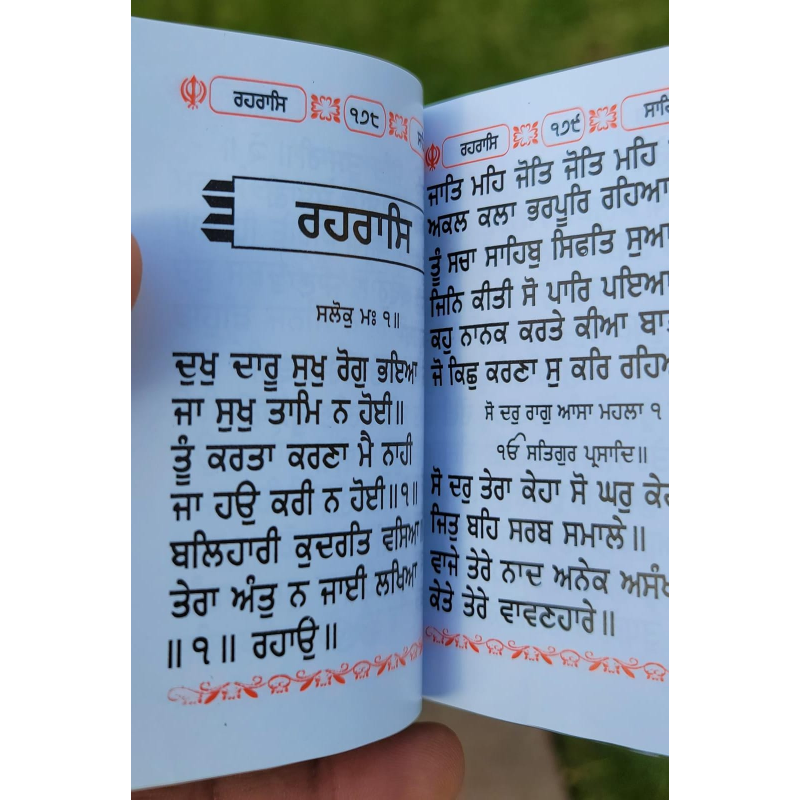 ਰਹਰਾਸਿ
੧੭੮
ਰਹਰਾਸਿ
ਸਲੋਕੁ ਮਃ ੧॥
ਦੁਖੁ ਦਾਰੂ ਸੁਖੁ ਰੋਗੁ ਭਇਆ
ਜਾ ਸੁਖੁ ਤਾਮਿ ਨ ਹੋਈ॥
ਤੂੰ ਕਰਤਾ ਕਰਣਾ ਮੈ ਨਾਹੀ
ਜਾ ਹਉ ਕਰੀ ਨ ਹੋਈ॥੧॥
ਬਲਿਹਾਰੀ ਕੁਦਰਤਿ ਵਸਿਆ
ਤੇਰਾ ਅੰਤੁ ਨ ਜਾਈ ਲਖਿਆ
॥੧॥ ਰਹਾਉ॥
ਰਹਰਾਸਿ
੧੭੯
ਜਾਤਿ ਮਹਿ ਜੋਤਿ ਜੋਤਿ ਮਹਿ
ਅਕਲ ਕਲਾ ਭਰਪੂਰਿ ਰਹਿਆ
ਤੂੰ ਸਚਾ ਸਾਹਿਬੁ ਸਿਫਤਿ
ਜਿਨਿ ਕੀਤੀ ਸੋ ਪਾਰਿ ਪਇਆ
ਕਹੁ ਨਾਨਕ ਕਰਤੇ ਕੀਆ
ਜੋ ਕਿਛੁ ਕਰਣਾ ਸੁ ਕਰਿ
ਸੋ ਦਰੁ ਰਾਗੁ ਆਸਾ ਮਹਲਾ ੧
ੴ ਸਤਿਗੁਰ ਪ੍ਰਸਾਦਿ॥
ਸੋ ਦਰੁ ਤੇਰਾ ਕੇਹਾ ਸੋ ਘਰੁ
ਜਿਤੁ ਬਹਿ ਸਰਬ ਸਮਾਲੇ॥
ਵਾਜੇ ਤੇਰੇ ਨਾਦ ਅਨੇਕ
ਕੇਤੇ ਤੇਰੇ ਵਾਵਣਹਾਰੇ॥